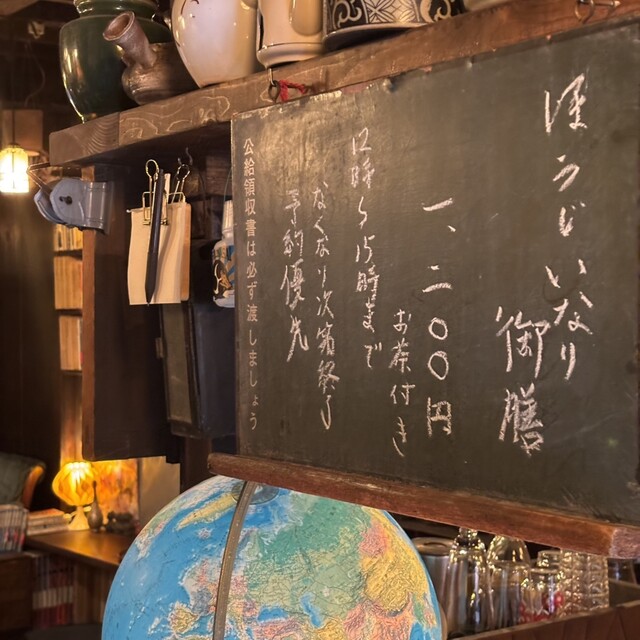 ほうじいなり
御膳
一、二〇〇円
お茶付き
12時〜15時まで
なくなり次第終了
予約優先
公給領収書は必ず渡しましょう